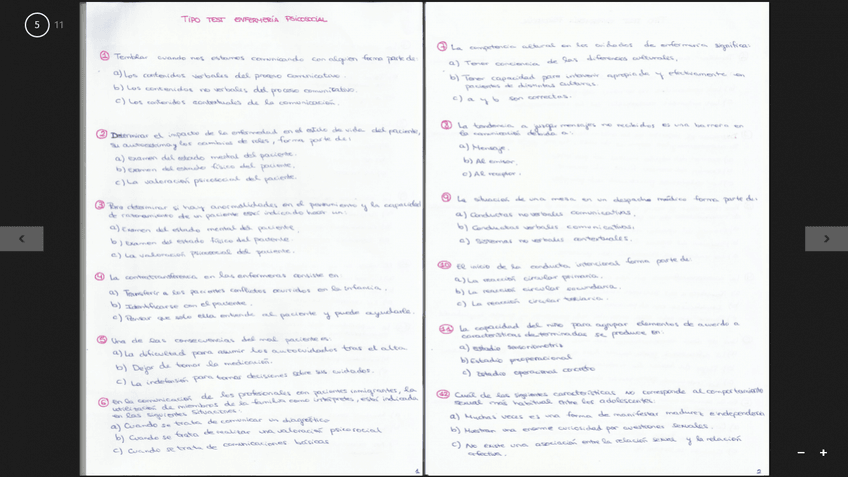 5 11
TIPO TEST ENFERMERÍA PSICOSOCIAL
1 Temblar cuando nos estamos comunicando con alguien forma parte de:
a) Los contenidos verbales del proceso comunicativo.
b) Los contenidos no verbales del proceso comunicativo.
c) Los contenidos contextuales de la comunicación.
2 Determinar el impacto de la enfermedad en el estilo de vida del paciente,
su autoestima y los cambios de roles, forma parte de:
a) Examen del estado mental del paciente.
b) Examen del estado físico del paciente.
c) La valoración psicosocial del paciente.
3 Para determinar si hay anormalidades en el pensamiento y la capacidad
de razonamiento de un paciente está indicado hacer un:
a) Examen del estado mental del paciente.
b) Examen del estado físico del paciente.
c) La valoración psicosocial del paciente.
4 La contratransferencia en las enfermeras consiste en:
a) Transferir a los pacientes conflictos ocurridos en la infancia.
b) Identificarse con el paciente.
c) Pensar que solo ella entiende al paciente y puede ayudarle.
5 Una de las consecuencias del mal paciente es:
a) La dificultad para asumir los autocuidados tras el alta
b) Dejar de tomar la medicación.
c) La indefensión para tomar decisiones sobre sus cuidados.
6 En la comunicación de los profesionales con pacientes inmigrantes, la
utilización de miembros de la familia como intérpretes, está indicada
en las siguientes situaciones:
a) Cuando se trata de comunicar un diagnóstico
b) Cuando se trata de realizar una valoración psicosocial
c) Cuando se trata de comunicaciones básicas
1
7 La competencia cultural en los cuidados de enfermería significa:
a) Tener conciencia de las diferencias culturales.
b) Tener capacidad para intervenir apropiada y efectivamente en
pacientes de distintas culturas.
c) a y b son correctas.
8 La tendencia a juzgar mensajes no recibidos es una barrera en
la comunicación debida a:
a) Mensaje.
b) Al emisor.
c) Al receptor.
9 La situación de una mesa en un despacho médico forma parte de:
a) Conductas no verbales comunicativas.
b) Conductas verbales comunicativas.
c) Sistemas no verbales contextuales.
10 El inicio de la conducta intencional forma parte de:
a) La reacción circular primaria.
b) La reacción circular secundaria.
c) La reacción circular terciaria.
11 La capacidad del niño para agrupar elementos de acuerdo a
características determinadas se produce en:
a) Estadio sensoriomotriz
b) Estadio preoperacional
c) Estadio operacional concreto
12 Cuál de las siguientes características no corresponde al comportamiento
sexual más habitual entre los adolescentes.
a) Muchas veces es una forma de manifestar madurez e independencia
b) Muestran una enorme curiosidad por cuestiones sexuales.
c) No existe una asociación entre la relación sexual y la relación
afectiva.
2